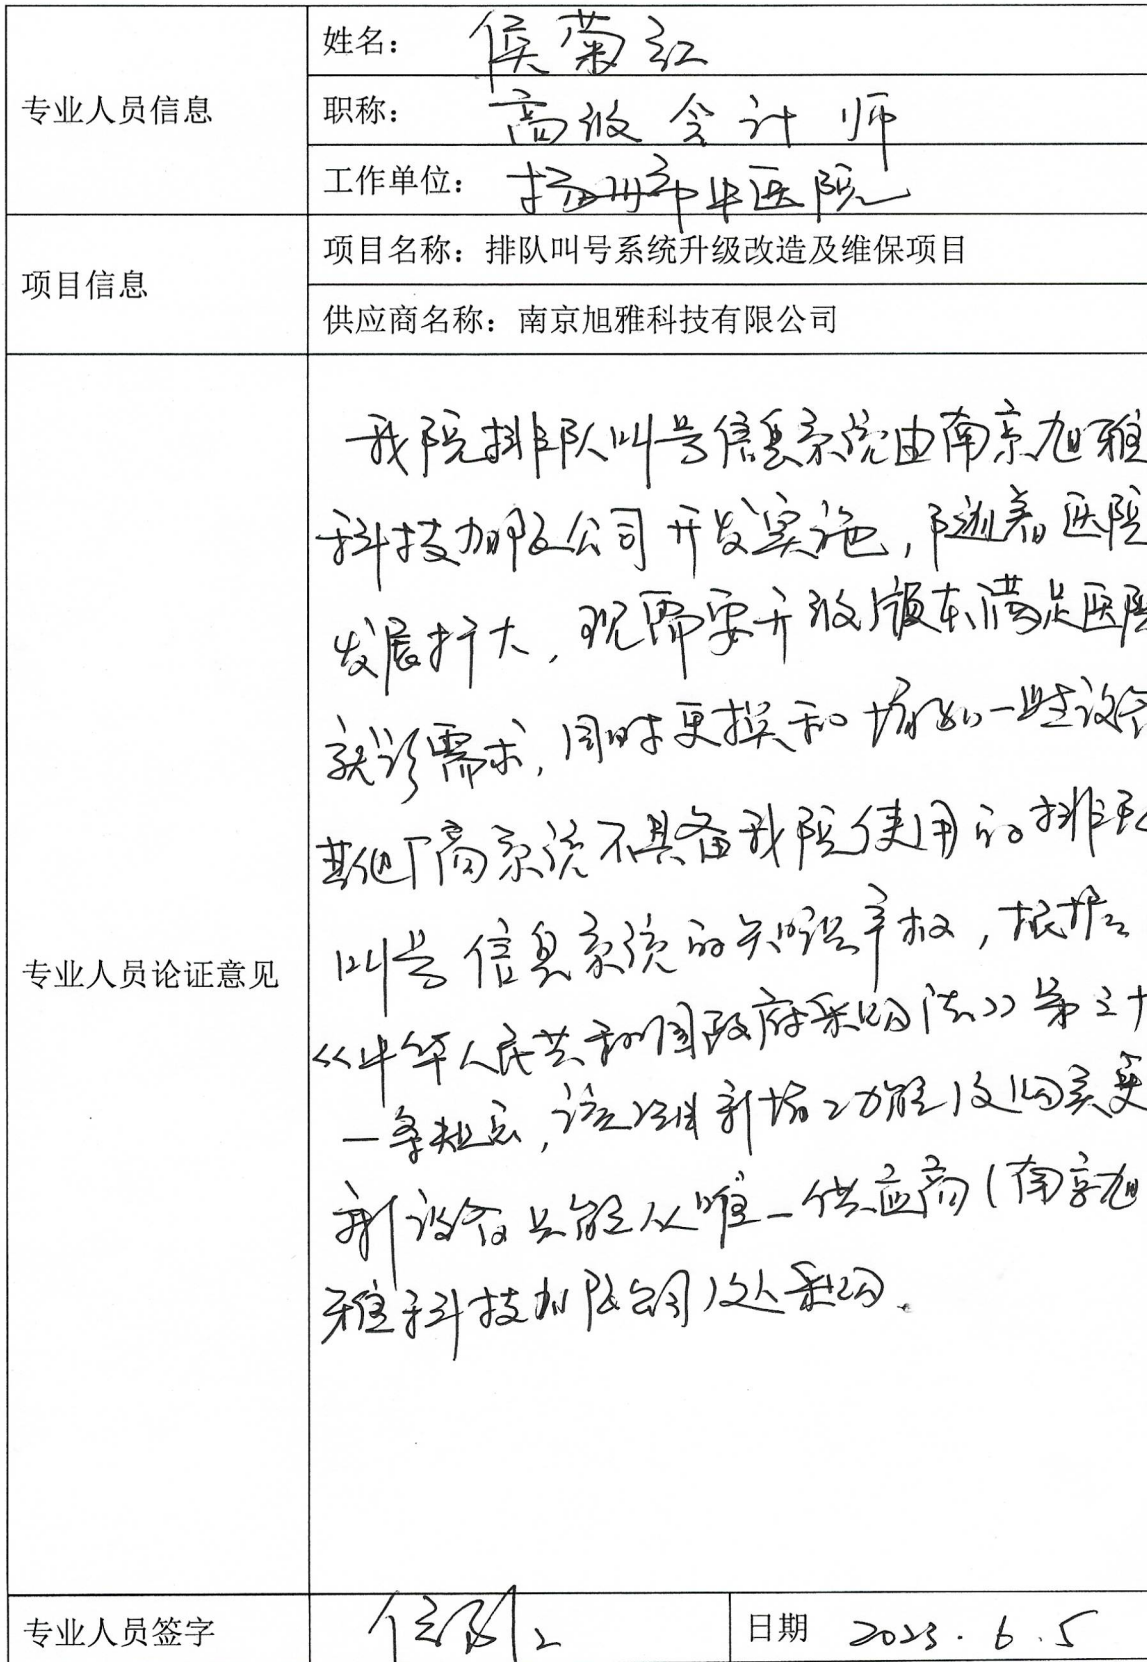 专业人员信息
姓名： 侯菊红
职称： 高级会计师
工作单位： 扬州市中医院
项目信息
项目名称：排队叫号系统升级改造及维保项目
供应商名称：南京旭雅科技有限公司
专业人员论证意见
我院排队叫号信息系统由南京旭雅
科技有限公司开发实施，随着医院
发展扩大，现需要升级版本满足医院
就诊需求，同时更换和增加一些设备
其他厂商系统不具备我院使用的排队
叫号信息系统的知识产权，根据
《中华人民共和国政府采购法》第三十
一条规定，该项目新增功能及购买更
新设备只能从唯一供应商（南京旭
雅科技有限公司）处采购.
专业人员签字
日期 2023.6.5